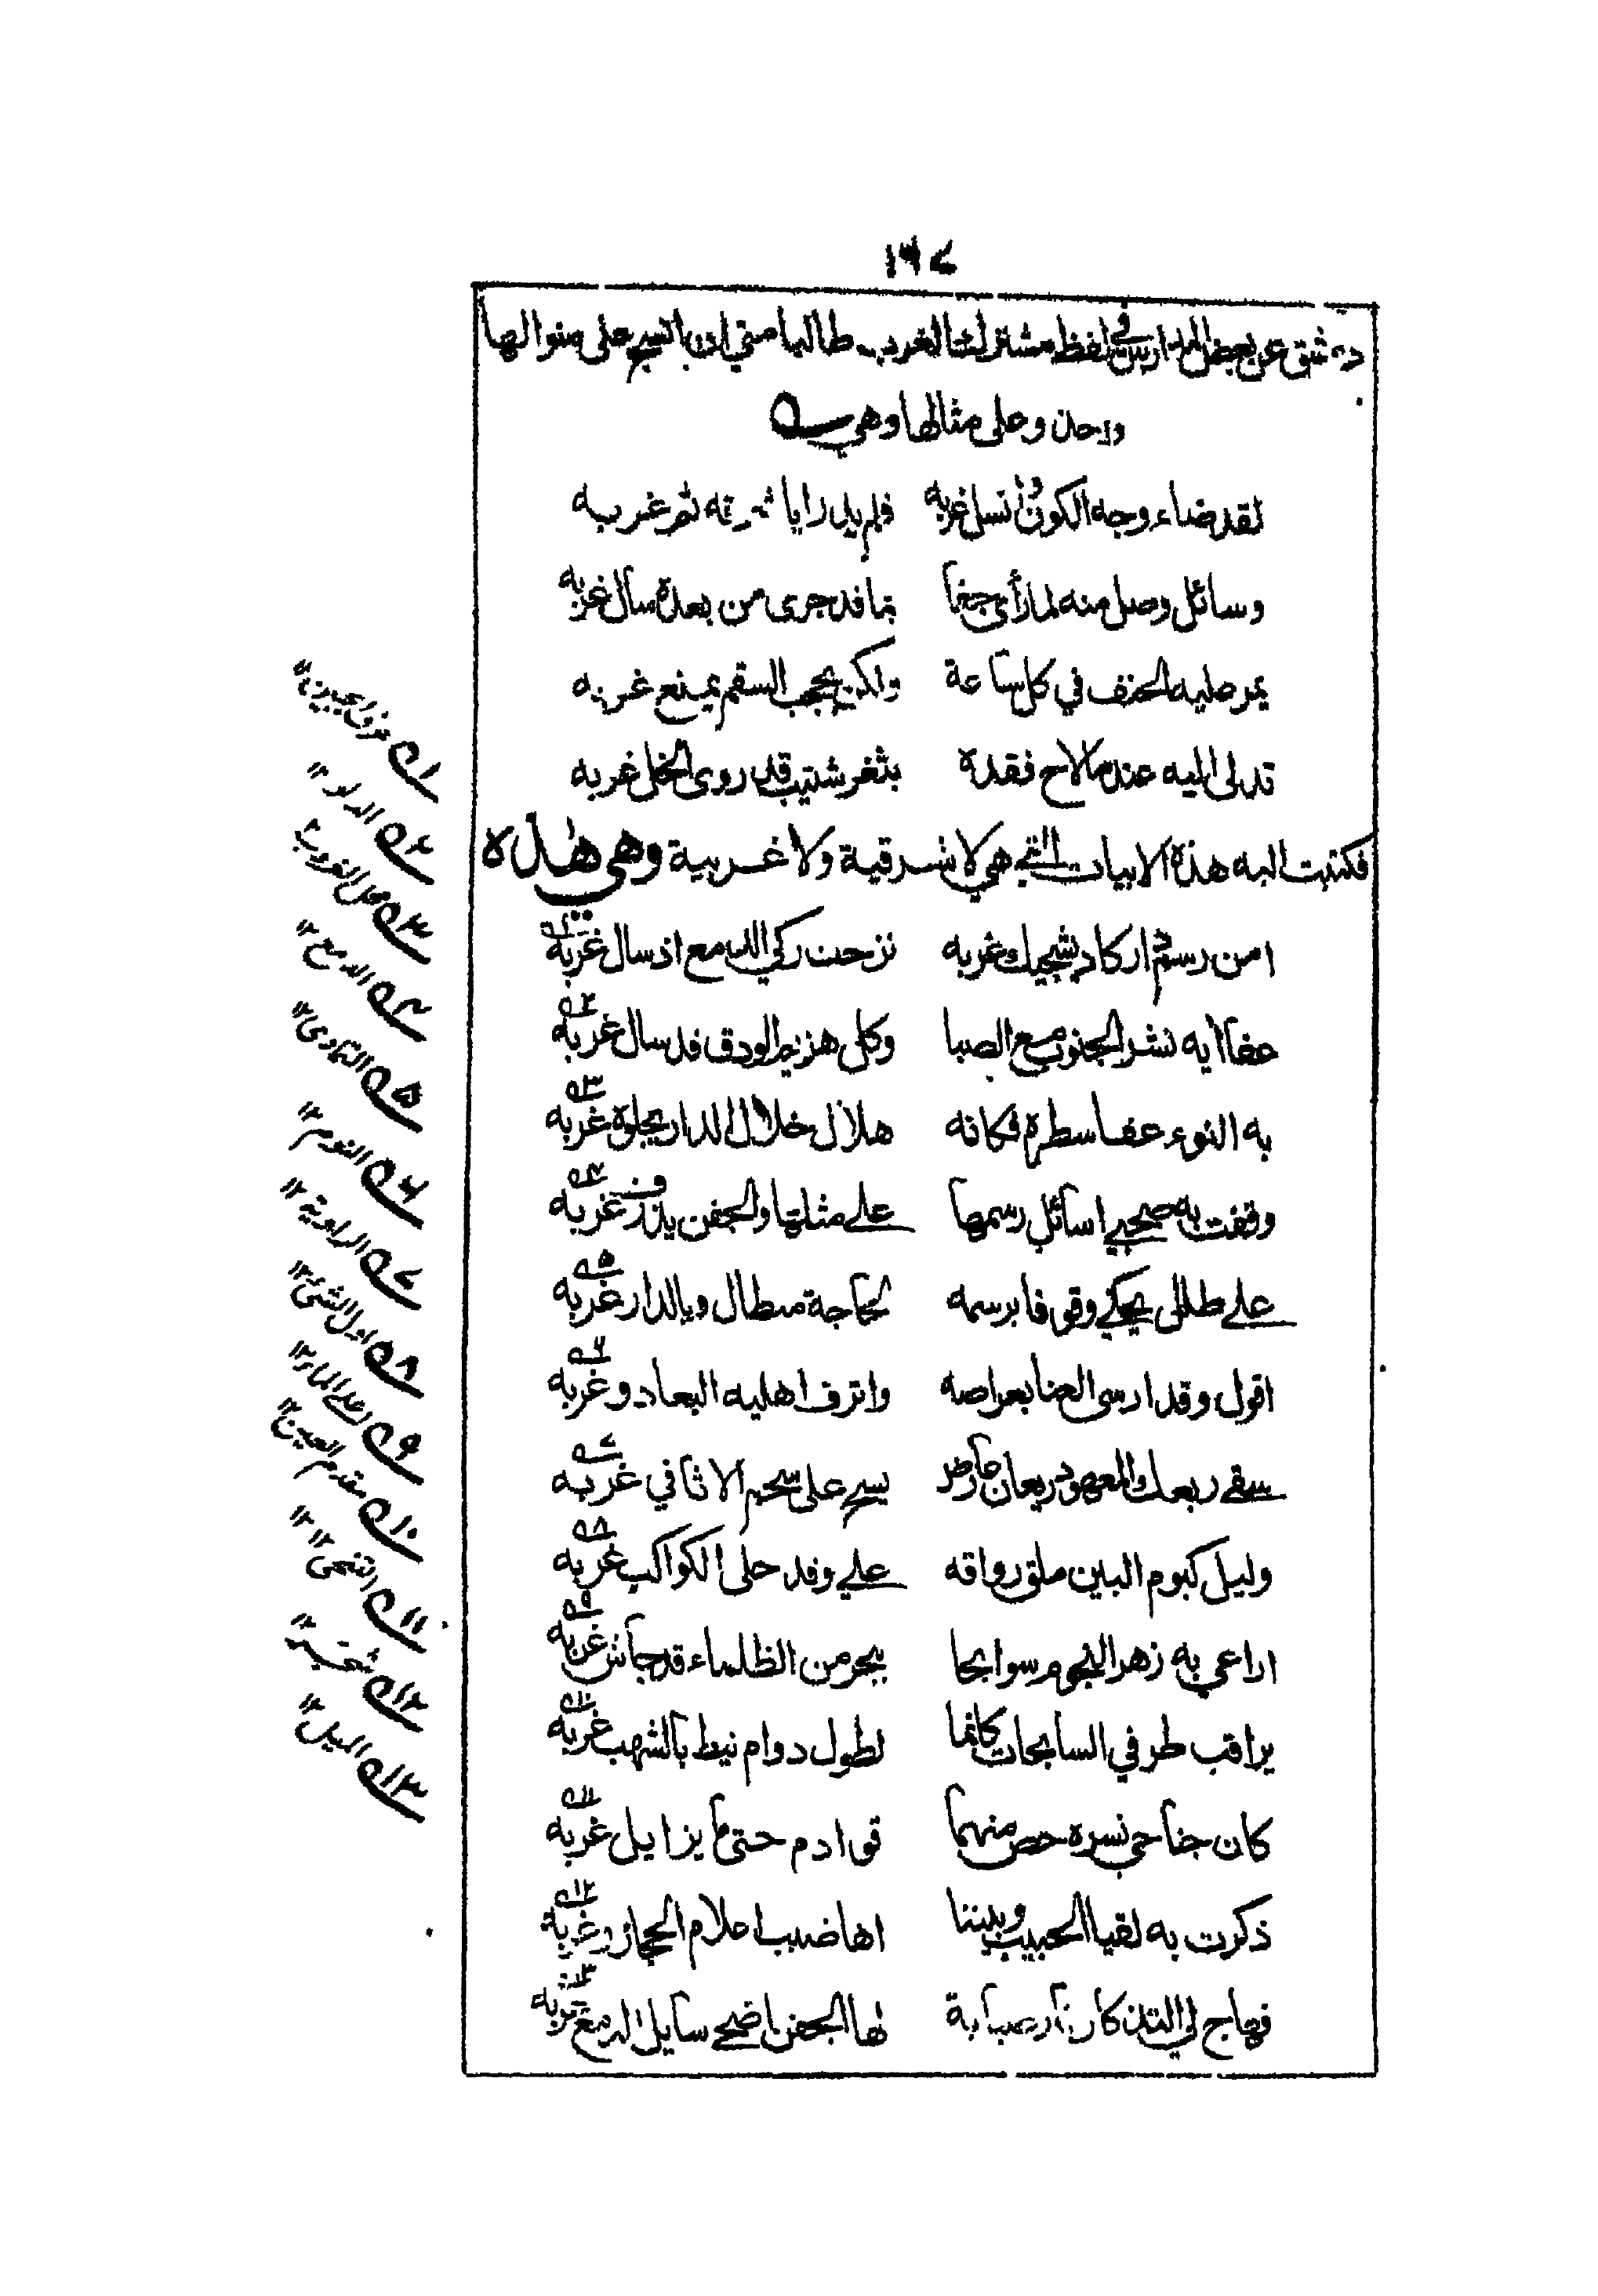 ١٦٧
دمشق عن بعض المدارس في لفظ مشترك الغرب طالبا مني ان انسج على منوالها
واحذو على مثالها وهي
لقد ضاء وجه الكون غربه فلم يدر ايا شرقه ثم غربه
وسائل وصل منه لما رأى جفا بما قد جرى من بعده سال غربه
يمر عليه الحتف في كل ساعة ولكن بحجب السقم يمنع غربه
تدلى اليه عند ما لاح فقده بثغر شتيب قد روى الخل غربه
فكتبت اليه هذه الابيات التي هي لا شرقية ولا غربية وهي هذه
امن رسم دار كاد يشجيك غربه نزحت ركي الدمع اذ سال غربه ١
عفا ايه نشر الجنوب مع الصبا وكل هزيم الودق قد سال غربه ٢
به النوء عفا سطره فكانه هلال خلال الدار يجلوه غربه ٣
وقفت به صحبي اسائل رسمها على مثلها والجفن يذرف غربه ٤
على طلل يحكي وقوفا برسمه لحاجة مطال وبالدار غربه ٥
اقول وقد ارسى العنا بعراصه واترف اهليه البعاد وغربه ٦
سقى ربعك المعهود ريعان عارض يسح على سحم الاثافي غربه ٧
وليل كيوم البين ملق رواقه علي وقد حلى الكواكب غربه ٨
اراعي به زهر النجوم سوابحا ببحر من الظلماء قد جاش غربه ٩
يراقب طرفي السابحات كانما لطول دوام نيط بالشهب غربه ١٠
كان جناحي نسره حص منهما قوادم حتى ما يزايل غربه ١١
ذكرت به لقيا الحبيب وبيننا اهاضيب اعلام الحجاز وغربه ١٢
فهاج لي التذكار نار صبابة لها الجفن اضحى سايل الدمع غربه ١٣
١ عرق الجبين ١٢
٢ الدلو ١٢
٣ محل الغروب ١٢
٤ الدمع ١٢
٥ التمادي ١٢
٦ النوم ١٢
٧ الراوية ١٢
٨ اول الشيء ١٢
٩ اعلى الماء ١٢
١٠ مقدم العين ١٢
١١ التنحي ١٢
١٢ شجر ١٢
١٣ السيل ١٢